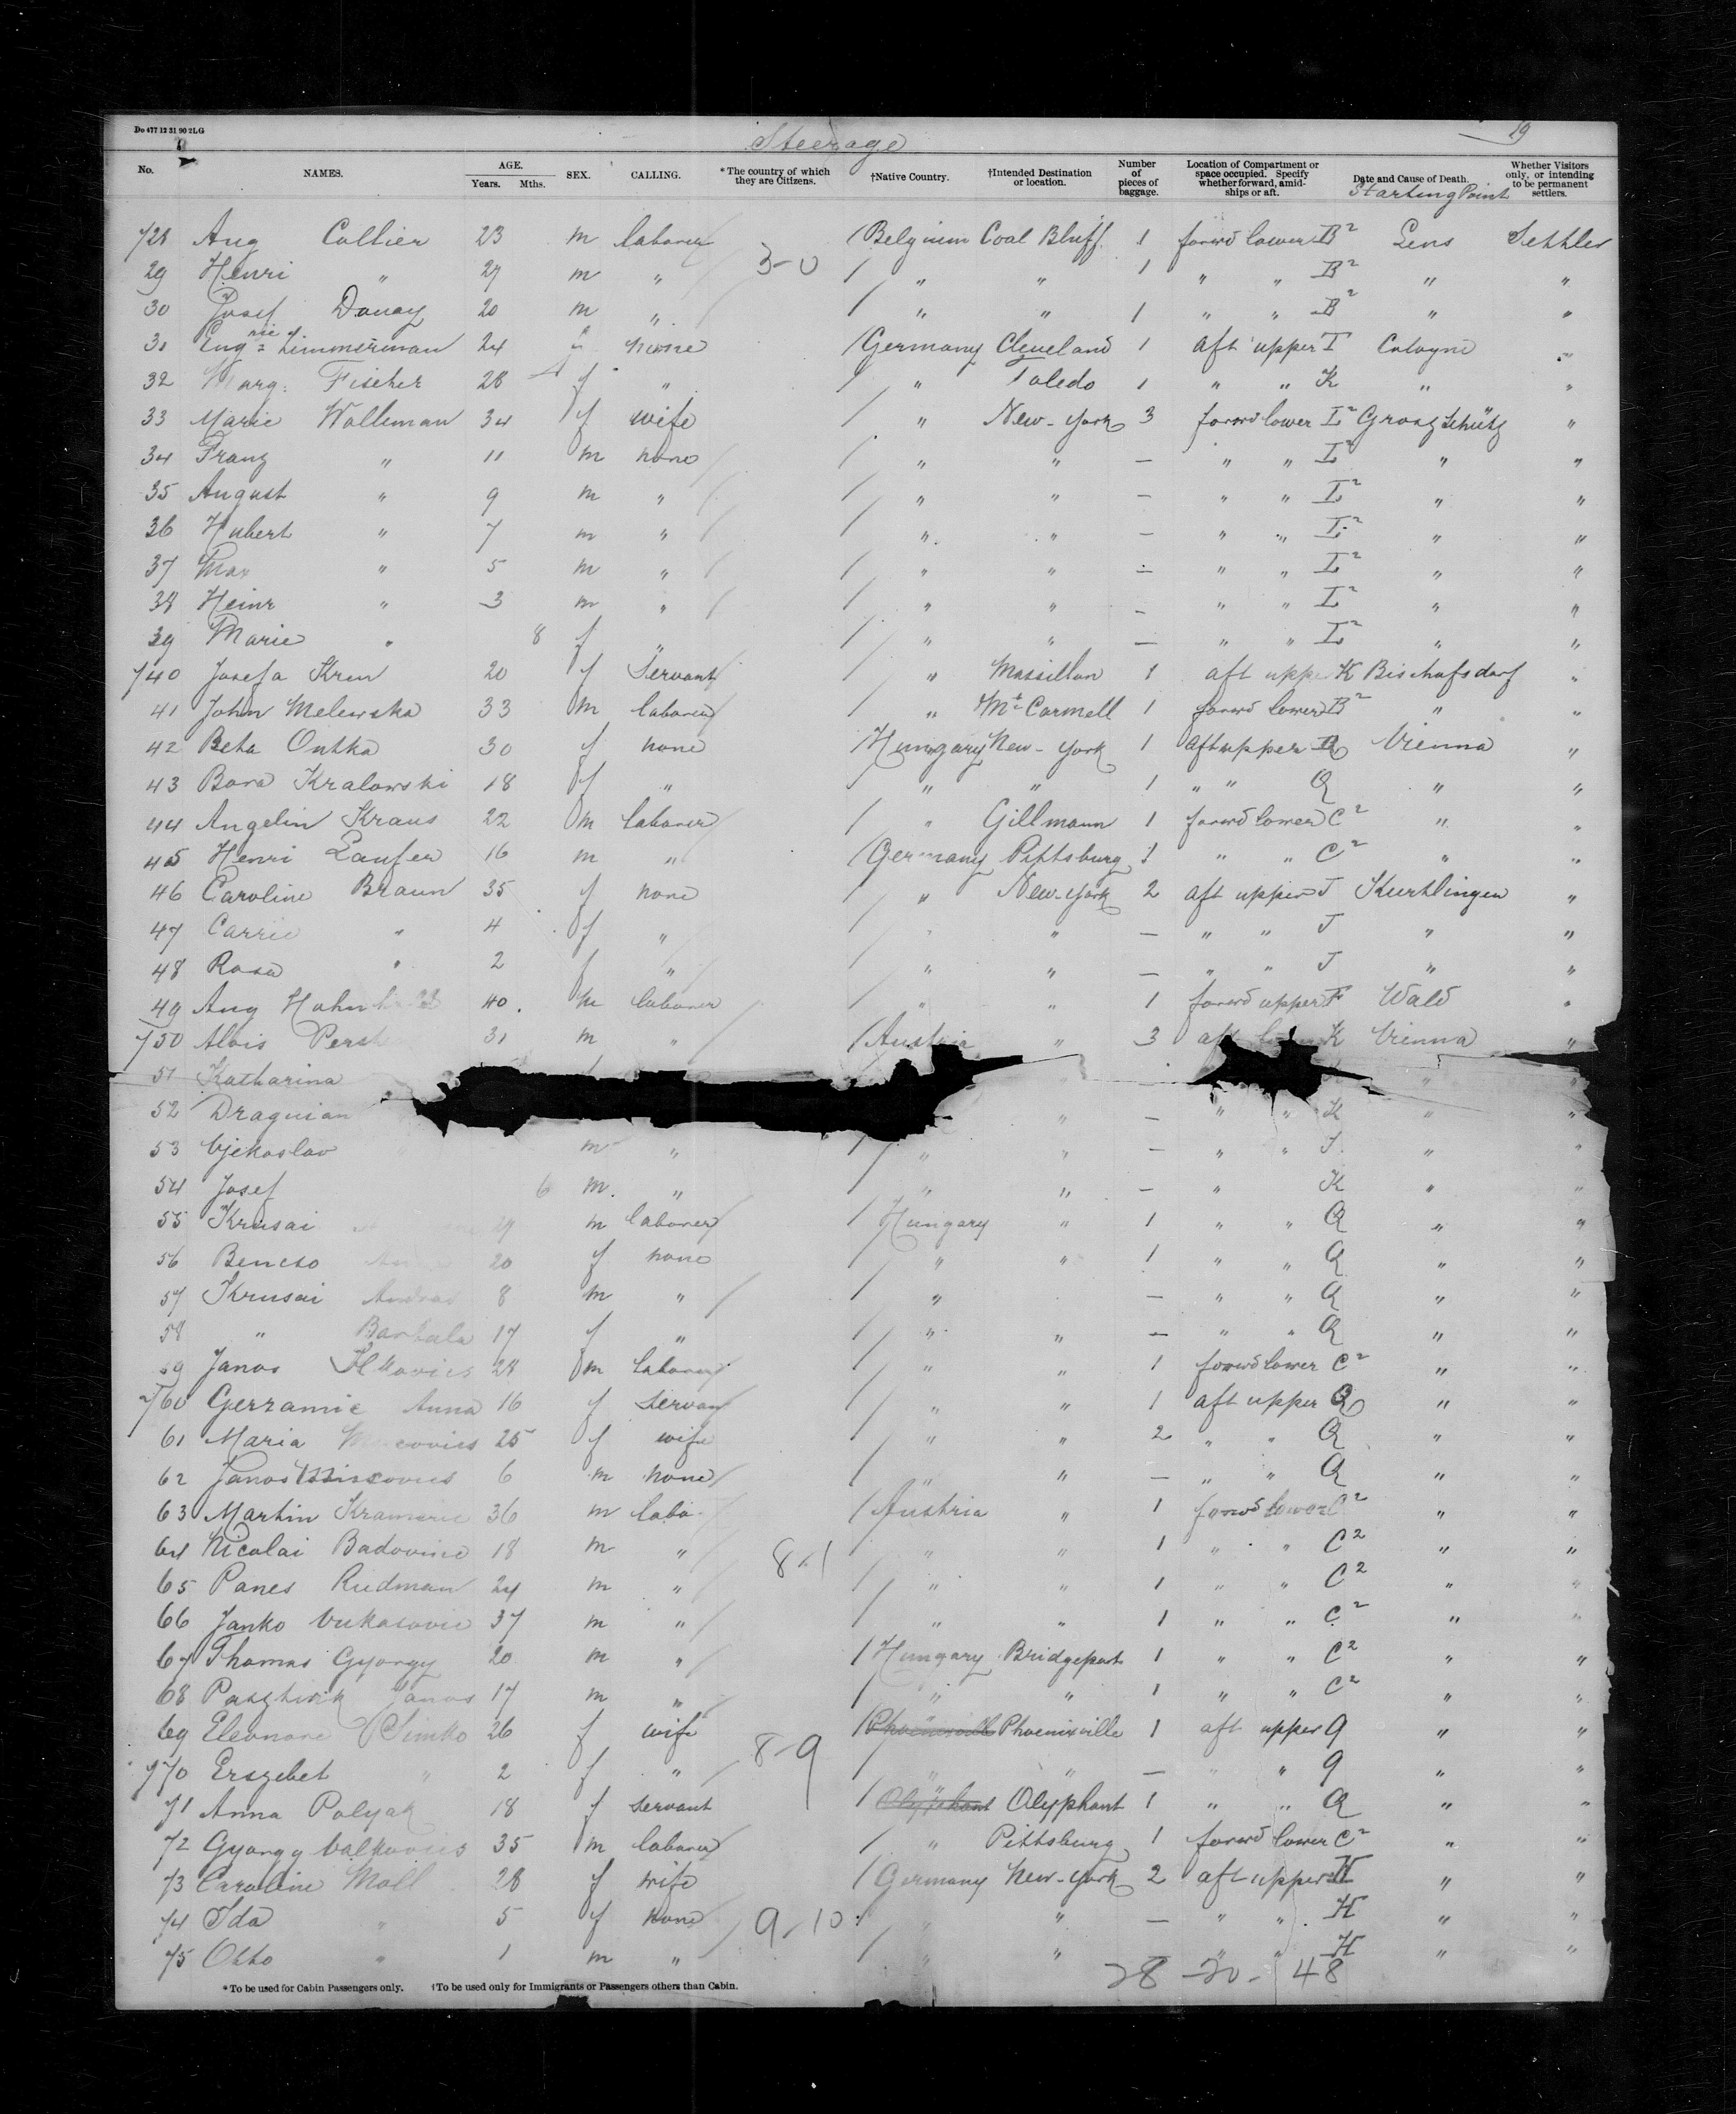 Do 477 12 31 90 2LG
Steerage 19
No. NAMES. AGE. Years. Mths. SEX. CALLING. *The country of which they are Citizens. †Native Country. †Intended Destination or location. Number of pieces of baggage. Location of Compartment or space occupied. Specify whether forward, amidships or aft. Date and Cause of Death. Starting Point Whether Visitors only, or intending to be permanent settlers.
728 Aug Collier 23 m laborer / Belgium Coal Bluff 1 forwd lower B² Lens Settler
29 Henri " 27 m " 3-0 / " " 1 " " B² " "
30 Josef Douay 20 m " / " " 1 " " B² " "
31 Zimmerman 24 f none / Germany Cleveland 1 aft upper I Cologne "
32 Marg: Fischer 28 f " / " Toledo 1 " " K " "
33 Marie Wolleman 34 f wife / " New-York 3 forwd lower I² Grosz Schütz "
34 Franz " 11 m none / " " — " " I² " "
35 August " 9 m " / " " — " " I² " "
36 Hubert " 7 m " / " " — " " I² " "
37 Max " 5 m " / " " — " " I² " "
38 Heinr " 3 m " / " " — " " I² " "
39 Marie " 8 f " / " " — " " I² " "
740 Josefa Kren 20 f Servant / " Massillon 1 aft upper K Bischofsdorf "
41 John Melewska 33 m laborer / " Mt Carmell 1 forwd lower B² " "
42 Beta Ontka 30 f none / Hungary New-York 1 aft upper Q Vienna "
43 Bora Kralowski 18 f " / " " 1 " " Q " "
44 Angelin Kraus 22 m laborer / " Gillmann 1 forwd lower C² " "
45 Henri Laufer 16 m " / Germany Pittsburg 1 " " C² " "
46 Caroline Braun 35 f none / " New-York 2 aft upper J Kurtlingen "
47 Carrie " 4 f " / " " — " " J " "
48 Rosa " 2 f " / " " — " " J " "
49 Aug Hohn 40 m laborer / " " 1 forwd upper F Wald "
750 Alois 31 m " / Austria " 3 aft K Vienna "
51 Katharina " — " "
52 Draguian " — " " K " "
53 Vjekoslav m " / " " — " " " "
54 Josef 6 m " / " " — " K " "
55 Krusai m laborer / Hungary " 1 " " Q " "
56 Bencso 20 f none / " " 1 " " Q " "
57 Krusai Andras 8 m " / " — " " Q " "
58 " Barbala 17 f " / " " — " " Q " "
59 Janos 28 m laborer / " " 1 forwd lower C² " "
760 Gerzamie Anna 16 f servan / " " 1 aft upper Q " "
61 Maria 25 f wife / " " 2 " " Q " "
62 Janos 6 m none / " " — " " Q " "
63 Martin Kramaric 36 m labo- / Austria " 1 forwd lower C² " "
64 Nicolai Badovinc 18 m " 8-1 / " " 1 " " C² " "
65 Panes Rudman 24 m " / " " 1 " " C² " "
66 Janko Vukasovic 37 m " / " " 1 " " C² " "
67 Thomas Gyorgy 20 m " / Hungary Bridgeport 1 " " C² " "
68 Janos 17 m " / " " 1 " " C² " "
69 Eleonore Simko 26 f wife / Phoenixville Phoenixville 1 aft upper q " "
770 Erszebet " 2 f " 8-9 / " " — " " q " "
71 Anna Polyak 18 f servant / Olyphant Olyphant 1 " " Q " "
72 Gyorgy Valkovics 35 m laborer / " Pittsburg 1 forwd lower C² " "
73 Caroline Moll 28 f wife / Germany New-York 2 aft upper H " "
74 Ida " 5 f none 9-10 / " " — " " H " "
75 Otto " 1 m " / " " — " " H " "
28-20-48
*To be used for Cabin Passengers only. †To be used only for Immigrants or Passengers others than Cabin.